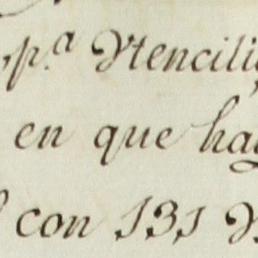 p.ª Vtencili
en que hay
con 131